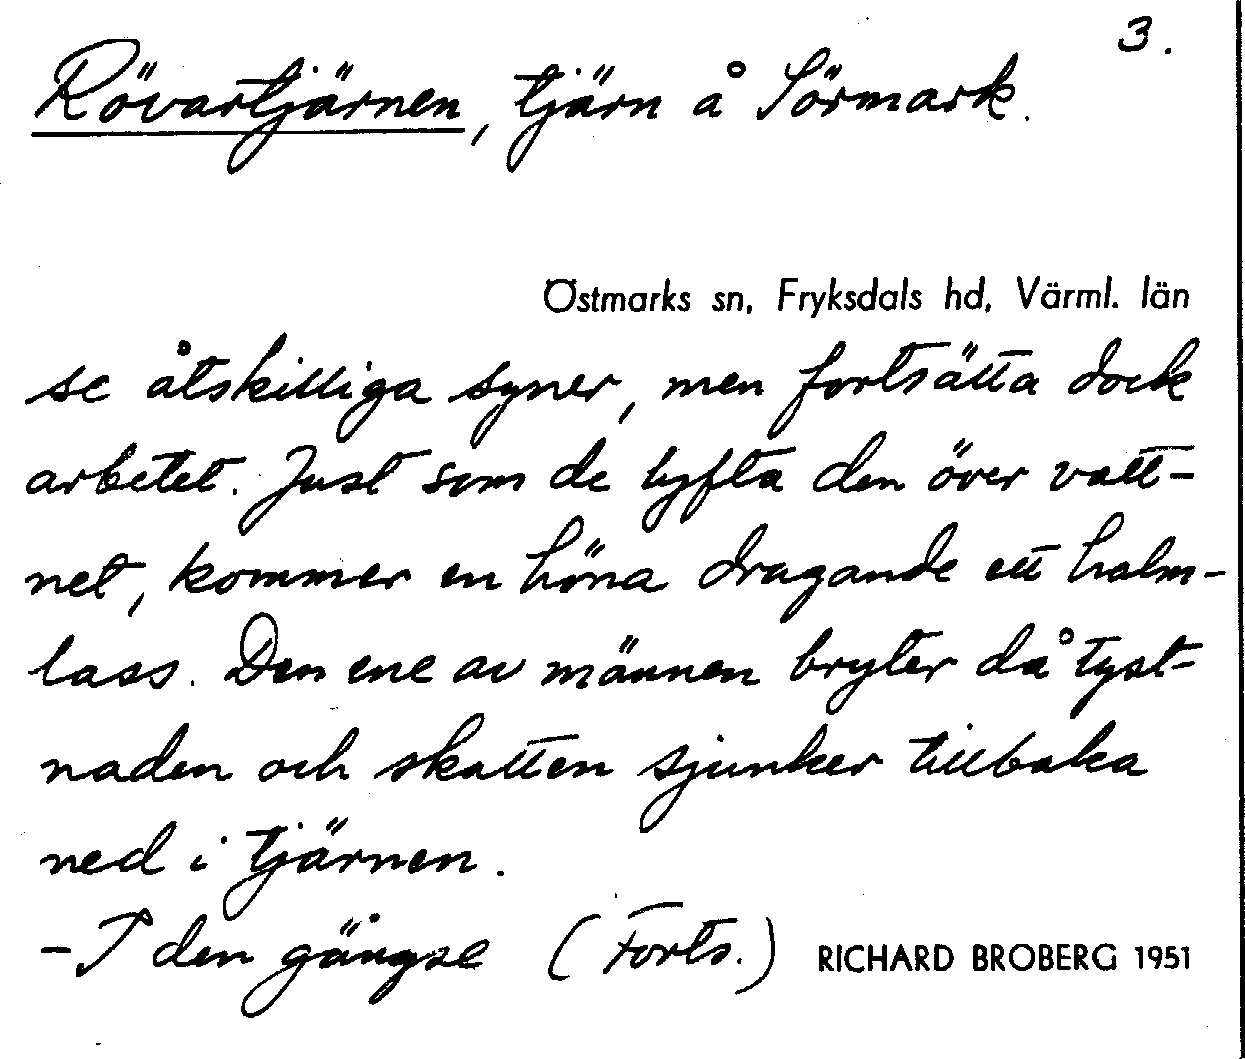 3.
Rövartjärnen, tjärn å Sörmark.
Östmarks sn, Fryksdals hd, Värml. län
se åtskilliga syner, men fortsätta dock
arbetet. Just som de lyfta den över vatt-
net, kommer en höna dragande ett halm-
lass. Den ene av männen bryter då tyst-
naden och skatten sjunker tillbaka
ned i tjärnen.
- I den gängse (Forts.) RICHARD BROBERG 1951